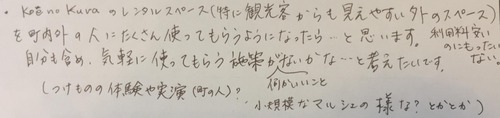 ・Kotto no Kura のレンタルスペース(特に観光客からも見えやすい外のスペース)
を町内外の人にたくさん使ってもらうようになったら…と思います。利用料安い
のにもったい
ない。
自分も含め、気軽に使ってもらう施策がないかな…と考えたいです。
何かいいこと
(つけものの体験や実演(町の人)?
小規模なマルシェの様な?とかとか)